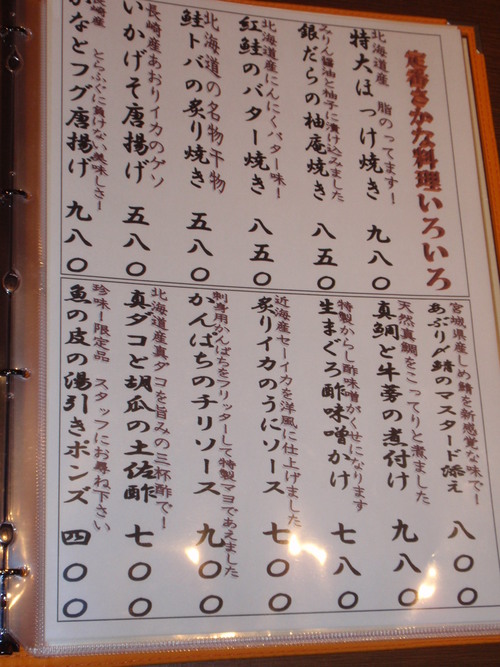 定番さかな料理いろいろ
北海道産 脂のってます!
特大ほっけ焼き 九八〇
みりん醤油と柚子に漬け込みました
銀だらの柚庵焼き 八五〇
北海道産にんにくバター味!
紅鮭のバター焼き 八五〇
北海道の名物干物
鮭トバの炙り焼き 五八〇
長崎産あおりイカのゲソ
いかげそ唐揚げ 五八〇
とらふぐに負けない美味しさ!
なとフグ唐揚げ 九八〇
宮城県産しめ鯖を新感覚な味で!
あぶり〆鯖のマスタード添え 八〇〇
天然真鯛をこってりと煮ました
真鯛と牛蒡の煮付け 九八〇
特製からし酢味噌がくせになります
生まぐろ酢味噌かけ 七八〇
近海産セーイカを洋風に仕上げました
炙りイカのうにソース 七〇〇
刺身用かんぱちをフリッターして特製マヨであえました
かんぱちのチリソース 九〇〇
北海道産真ダコを旨みの三杯酢で!
真ダコと胡瓜の土佐酢 七〇〇
珍味!限定品 スタッフにお尋ね下さい
魚の皮の湯引きポンズ 四〇〇